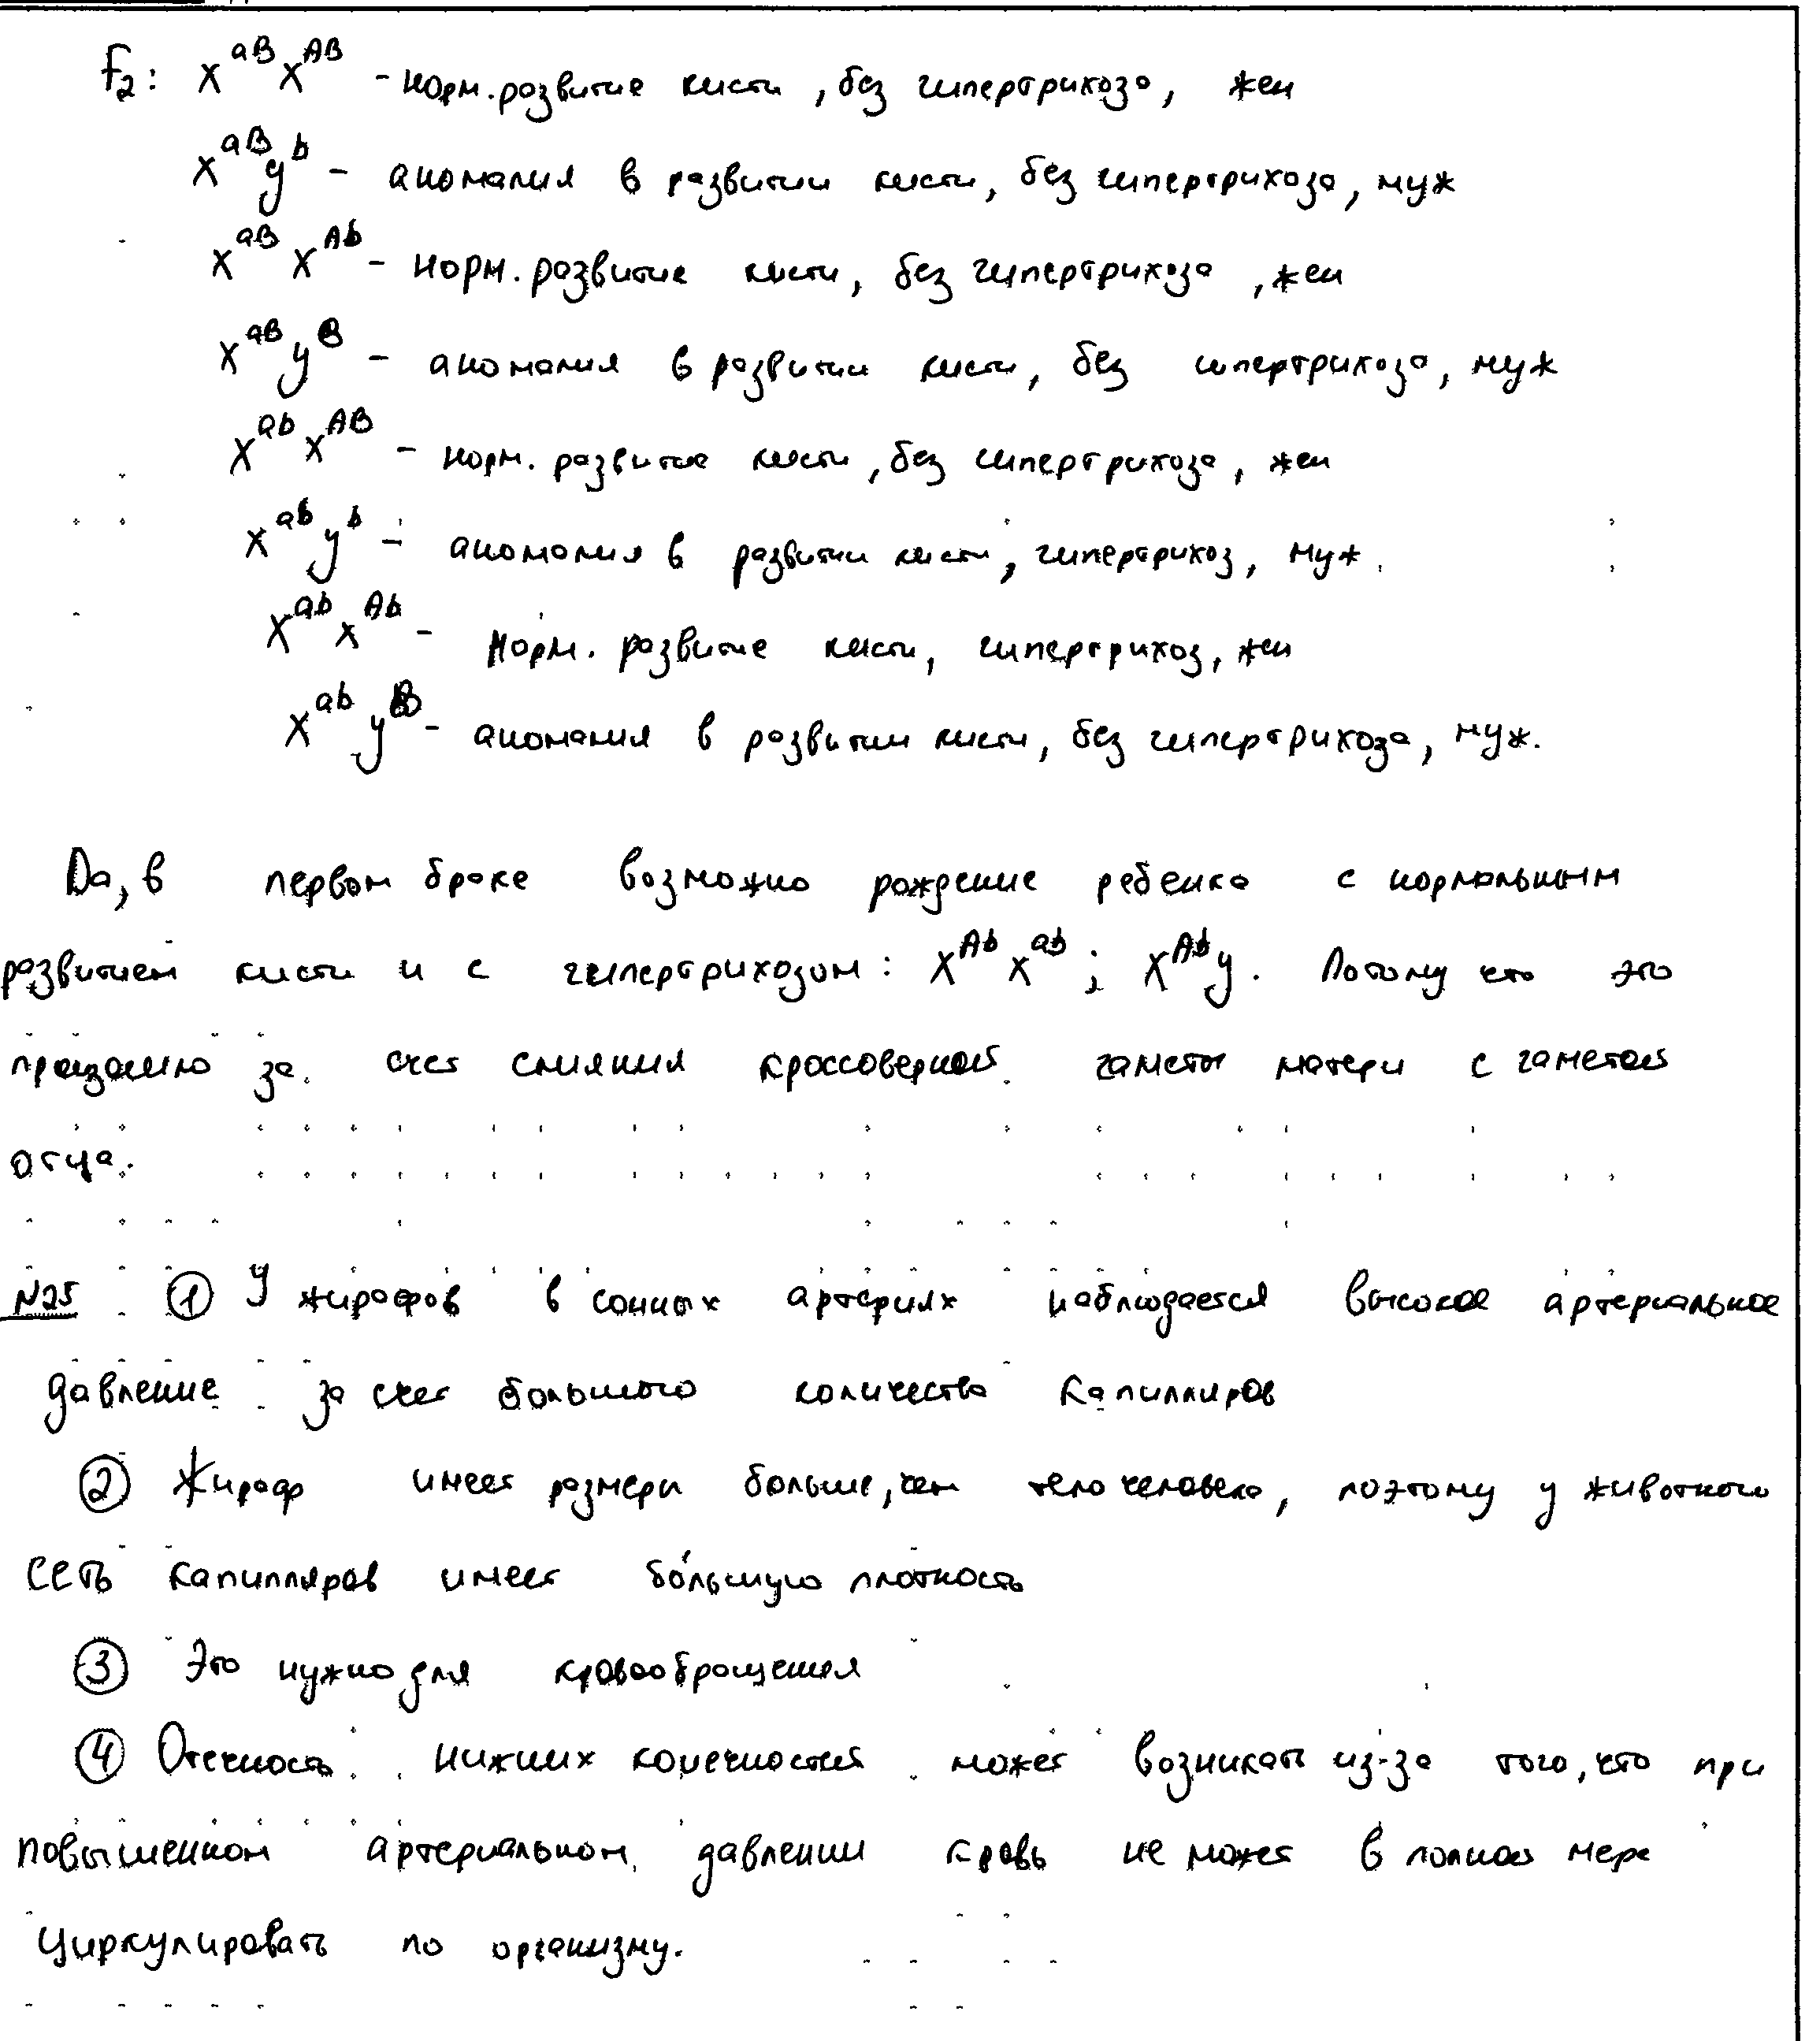 F₂: X^aB X^AB - норм. развитие кисти, без гипертрихоза, жен
X^aB y^b - аномалия в развитии кисти, без гипертрихоза, муж
X^aB X^Ab - норм. развитие кисти, без гипертрихоза, жен
X^aB y^B - аномалия в развитии кисти, без гипертрихоза, муж
X^ab X^AB - норм. развитие кисти, без гипертрихоза, жен
X^ab y^b - аномалия в развитии кисти, гипертрихоз, муж.
X^ab X^Ab - Норм. развитие кисти, гипертрихоз, жен
X^ab y^B - аномалия в развитии кисти, без гипертрихоза, муж.
Да, в первом браке возможно рождение ребенка с нормальным
развитием кисти и с гипертрихозом: X^Ab X^ab ; X^Ab y. Потому что это
произошло за счет слияния кроссоверной гаметы матери с гаметой
отца.
N25 ① У жирафов в сонных артериях наблюдается высокое артериальное
давление за счет большого количества капилляров
② Жираф имеет размеры больше, чем тело человека, поэтому у животного
сеть капилляров имеет бо́льшую плотность
③ Это нужно для кровообращения
④ Отечность нижних конечностей может возникать из-за того, что при
повышенном артериальном давлении кровь не может в полной мере
циркулировать по организму.